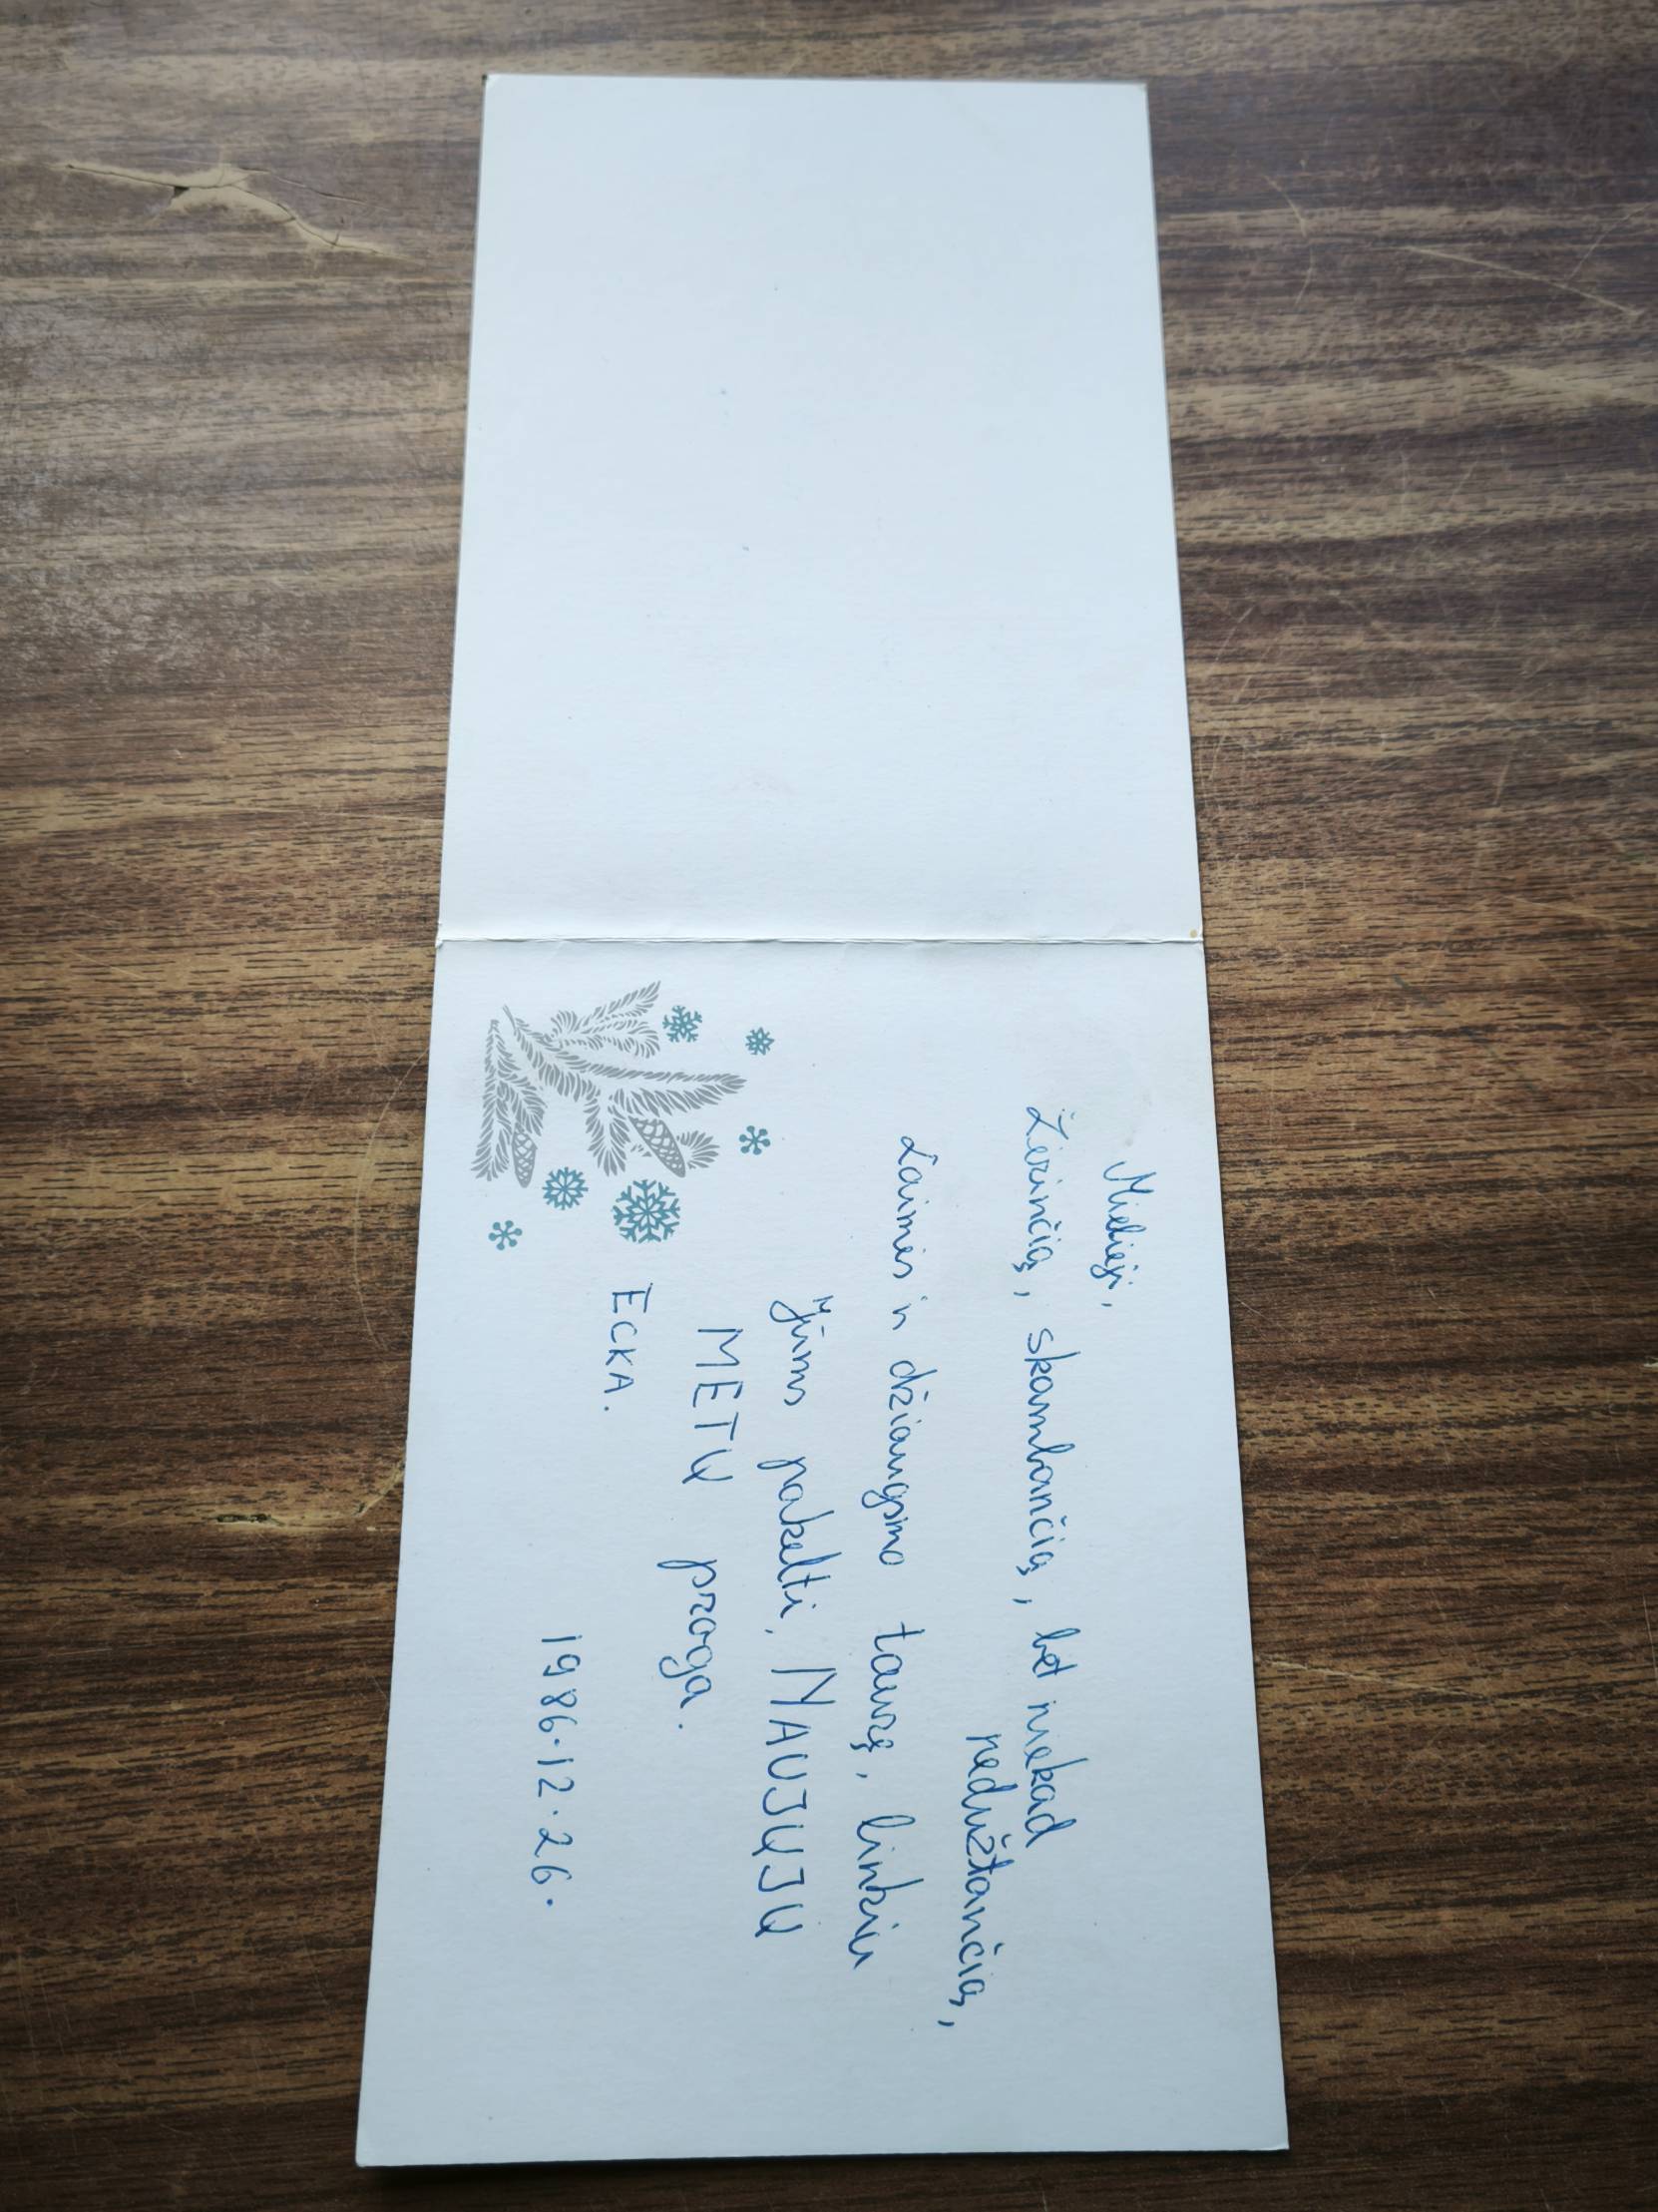 Mielieji,
Žerinčią, skambančią, bet niekad
nedužtančią,
Laimės ir džiaugsmo taurę, linkiu
Jūms pakelti, NAUJŲJŲ
METŲ proga.
ECKA.
1986.12.26.